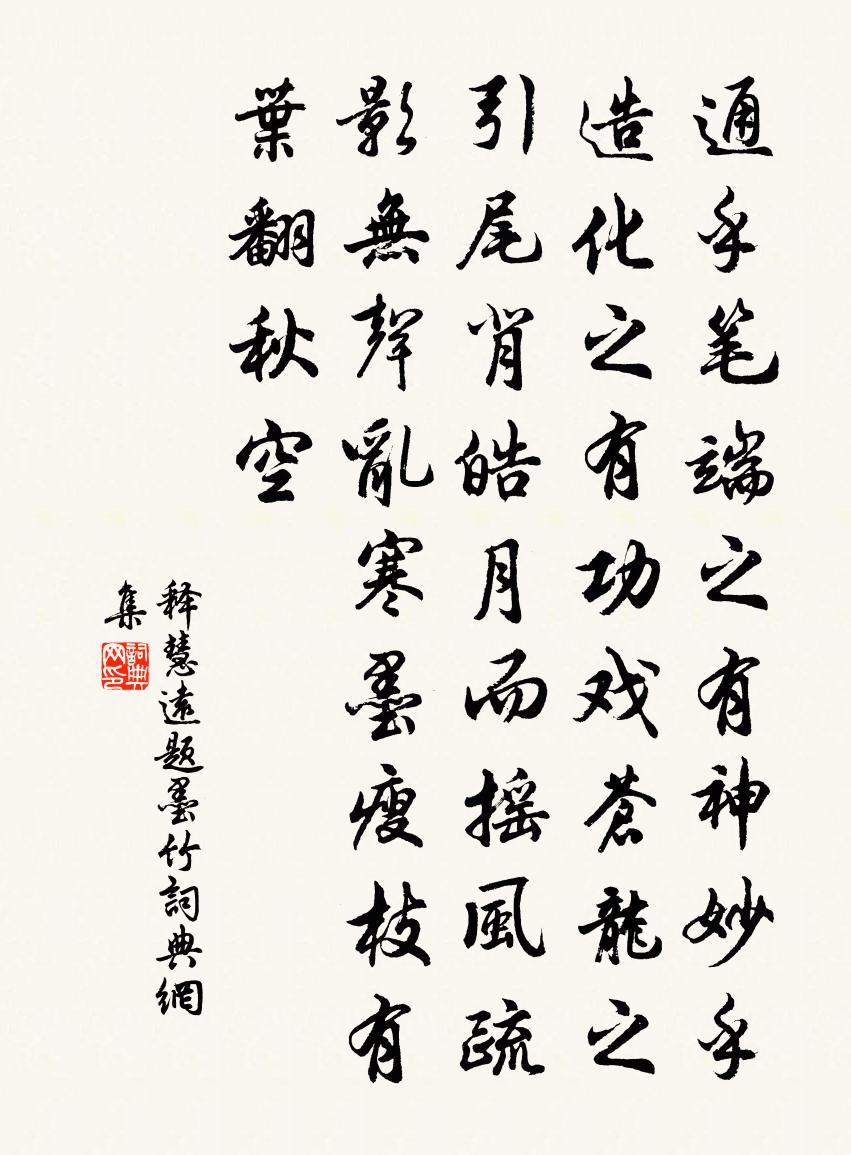 通乎笔端之有神妙乎
造化之有功戏蒼龍之
引尾背皓月而摇風疏
影無聲亂寒墨瘦枝有
葉翻秋空
释慧遠题墨竹詞典網
集
詞典网印